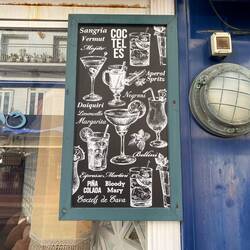 Sangria
Vermut
Mojito
COC
TEL
ES
Aperol
Spritz
Negroni
Daiquiri
Limoncello
Margarita
Bellini
Espresso Martini
PIÑA
COLADA
Bloody
Mary
Coctels de Cava